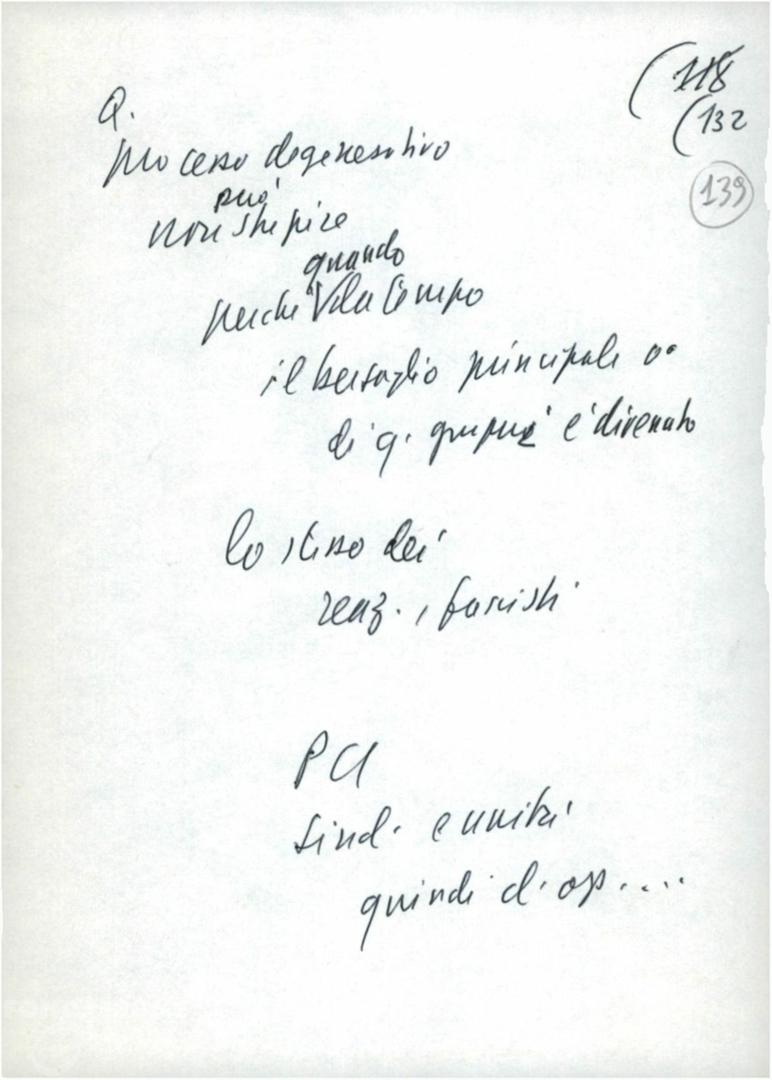 (118
(132
139
Q.
processo degenerativo
può
non stupire
quando
perché da tempo
il bersaglio principale
di q. gruppi è divenuto
lo stesso dei
reaz., fascisti
PCI
Sind. e unità
quindi cl. op....